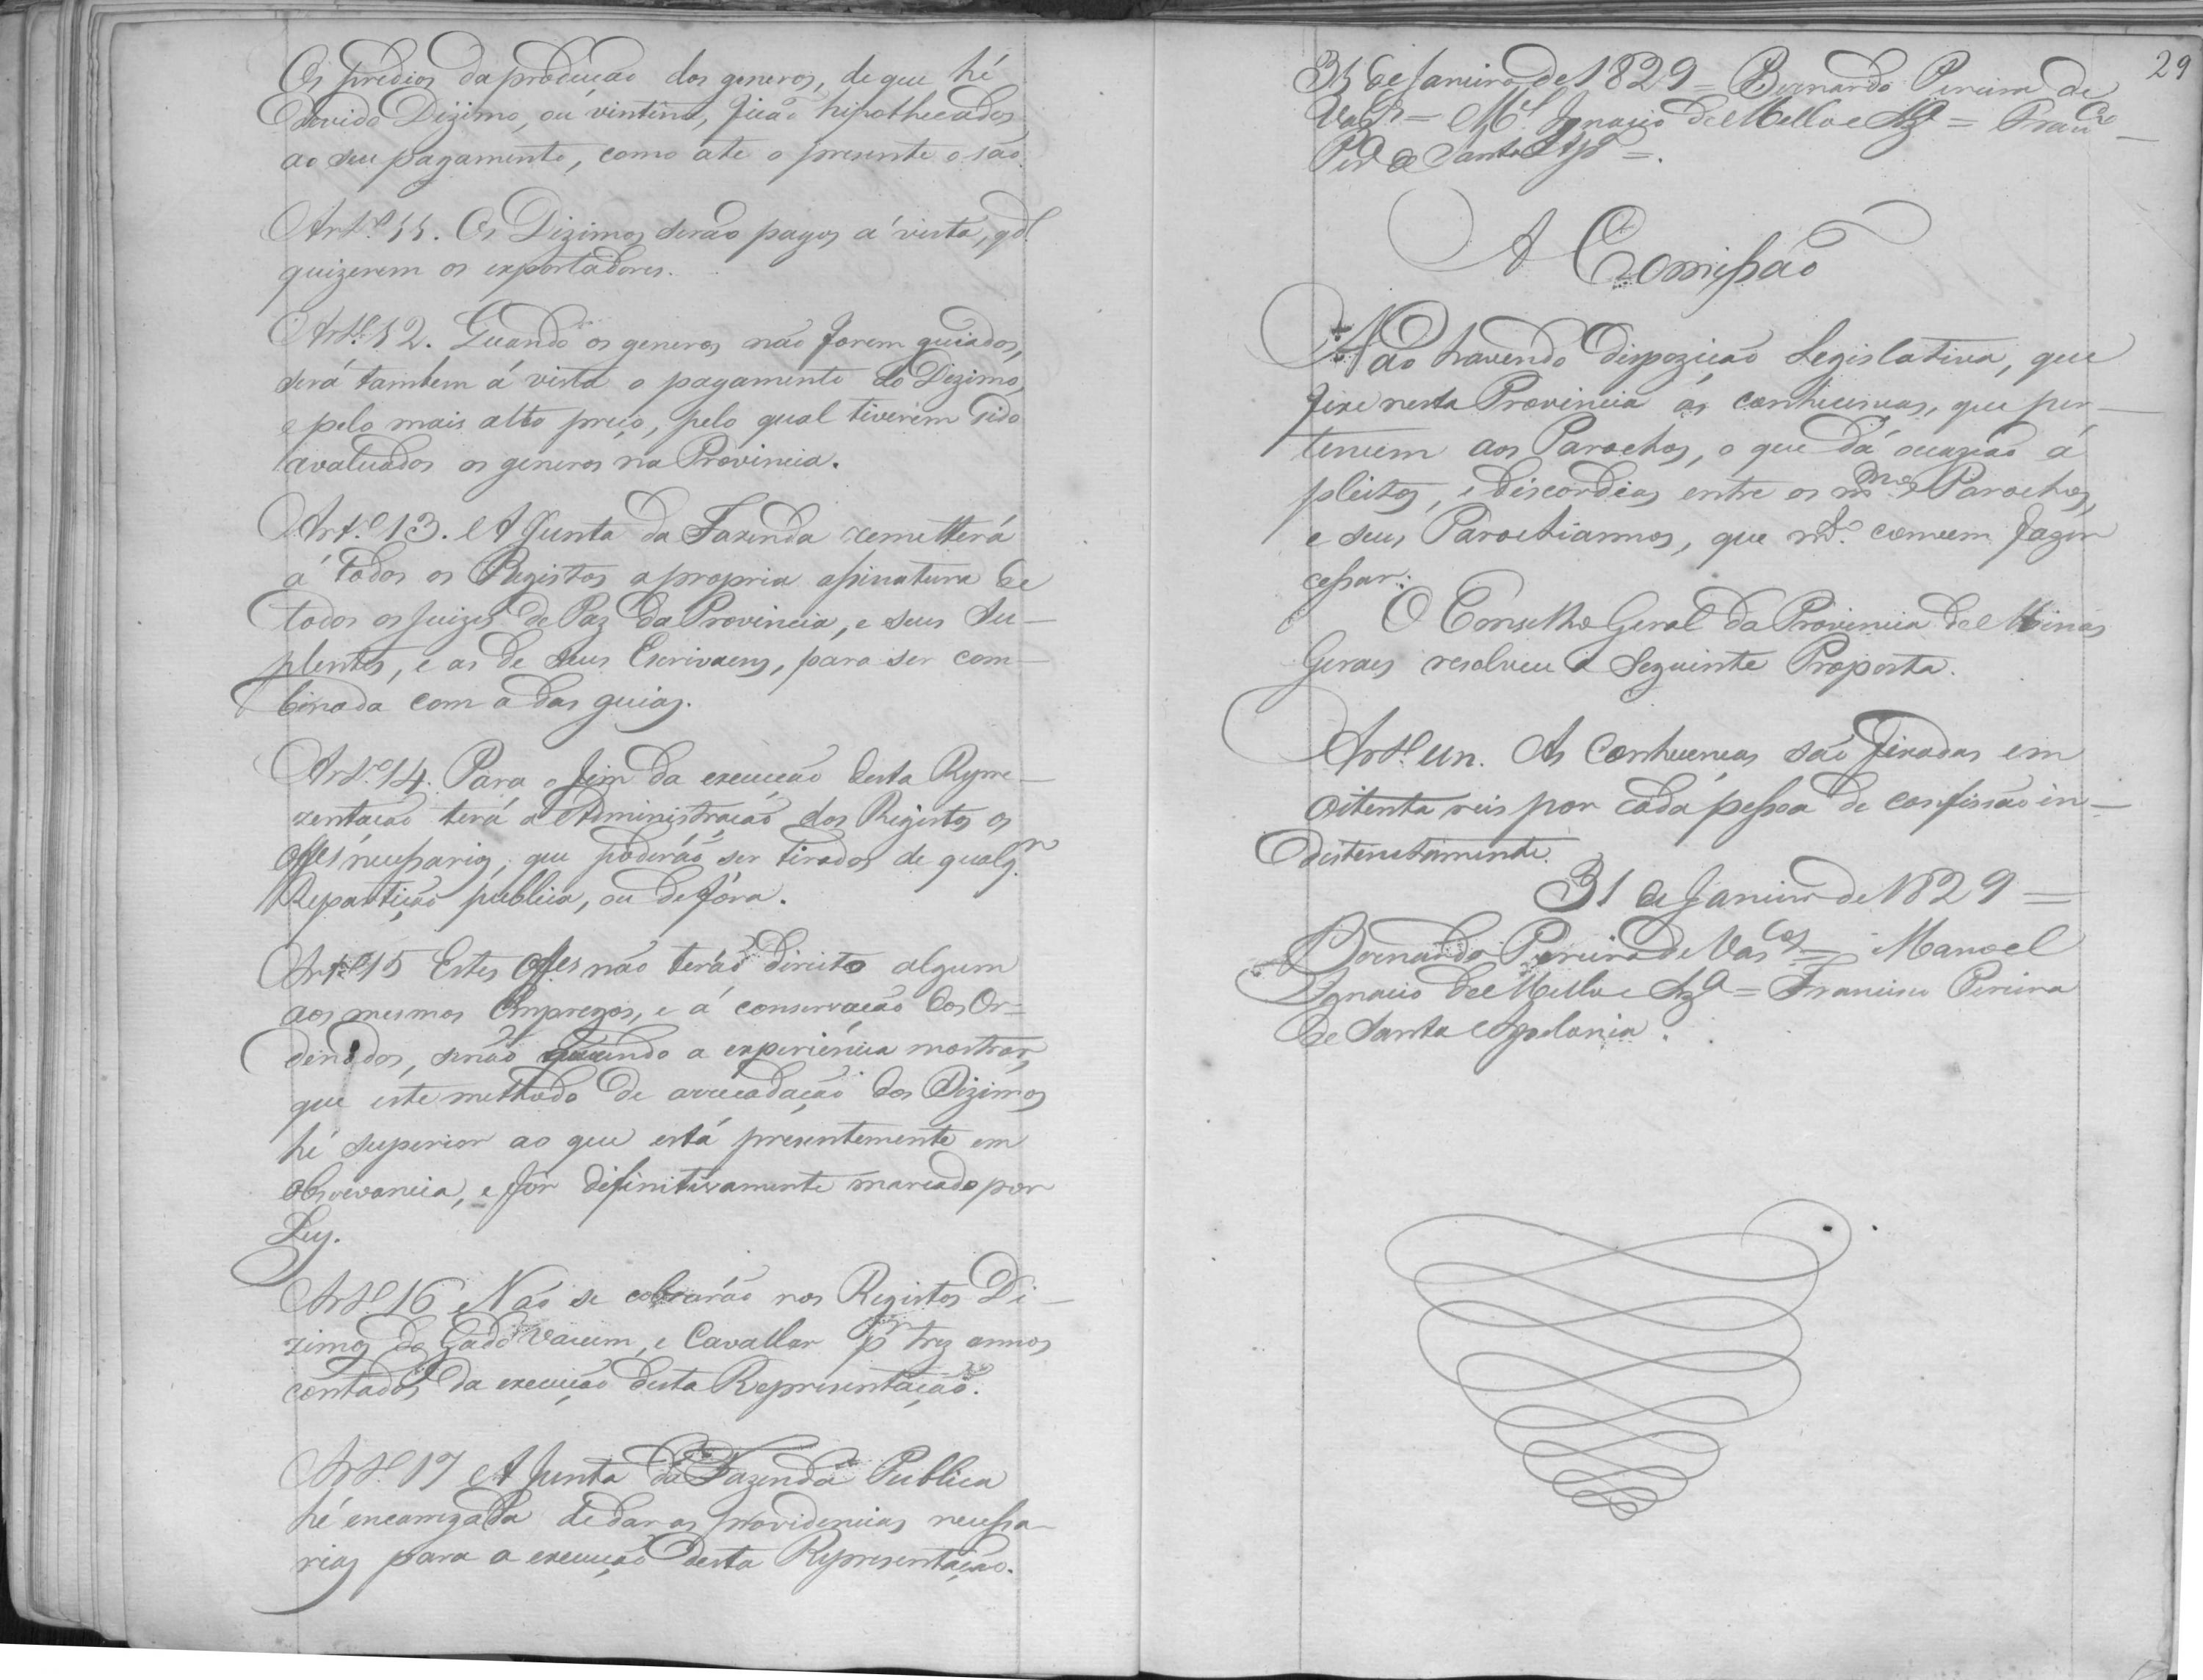 Os predios da producçaõ dos generos, de que hé
devido Dizimo, ou vintena, ficaõ hipothecados
ao seu pagamento, como ate o presente o saõ.
Art.º 11. Os Dizimos seraõ pagos á vista, qd.º
quizerem os exportadores.
Art.º 12. Quando os generos naõ forem guiados,
será tambem á vista o pagamento do Dizimo,
e pelo mais alto preço, pelo qual tiverem sido
avaluados os generos na Provincia.
Art.º 13. A Junta da Fazenda remetterá
a todos os Registos a propria assinatura de
todos os Juizes de Paz da Provincia, e seus Su-
plentes, e as de seus Escrivaens, para ser com-
binada com a das guias.
Art.º 14. Para o fim da execuçaõ desta Repre-
zentaçaõ terá a Administraçaõ dos Registos os
Off.es necessarios, que poderáõ ser tirados de qualq.r
Repartiçaõ publica, ou de fóra.
Art.º 15 Estes Off.es naõ teráõ direito algum
aos mesmos Empregos, e á conservaçaõ dos Or=
denados, senaõ quando a experiencia mostrar,
que este methodo de arrecadaçaõ dos Dizimos
hé superior ao que está presentemente em
observancia, e for difinitivamente marcado por
Ley.
Art.º 16 Naõ se cobraráõ nos Registos Di-
zimos do Gado Vacum, e Cavallar p.r trez annos
contados da execuçaõ desta Representaçaõ.
Art.º 17 A Junta da Fazenda Publica
hé encarregada de dar as providencias necessa-
rias para a execuçaõ desta Representaçaõ.
29
31 de Janeiro de 1829 = Bernardo Pereira de
Vas.cos = M.el Ignacio de Mello e Sz.ª = Fran.co
Per.ª de Santa Ap.ª =.
A Comissaõ
Naõ havendo dispoziçaõ Legislativa, que
fixe nesta Provincia as conhecenças, que per-
tencem aos Parochos, o que dá occaziaõ á
pleitos, e discordias entre os m.mos Parochos,
e seus Parochiannos, que m.to convem fazer
cessar:
O Conselho Geral da Provincia de Minas
Geraes resolveu a Seguinte Proposta.
Art.º un. As Conhecenças saõ fixadas em
oitenta reis por cada pessoa de confissaõ in-
destinctamente.
31 de Janeiro de 1829 =
Bernardo Pereira de Vas.cos = Manoel
Ignacio de Mello e Sz.ª = Francisco Pereira
de Santa Apolonia.